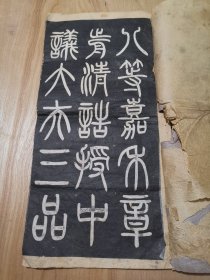 八等嘉禾章
前清誥授中
議大夫三品